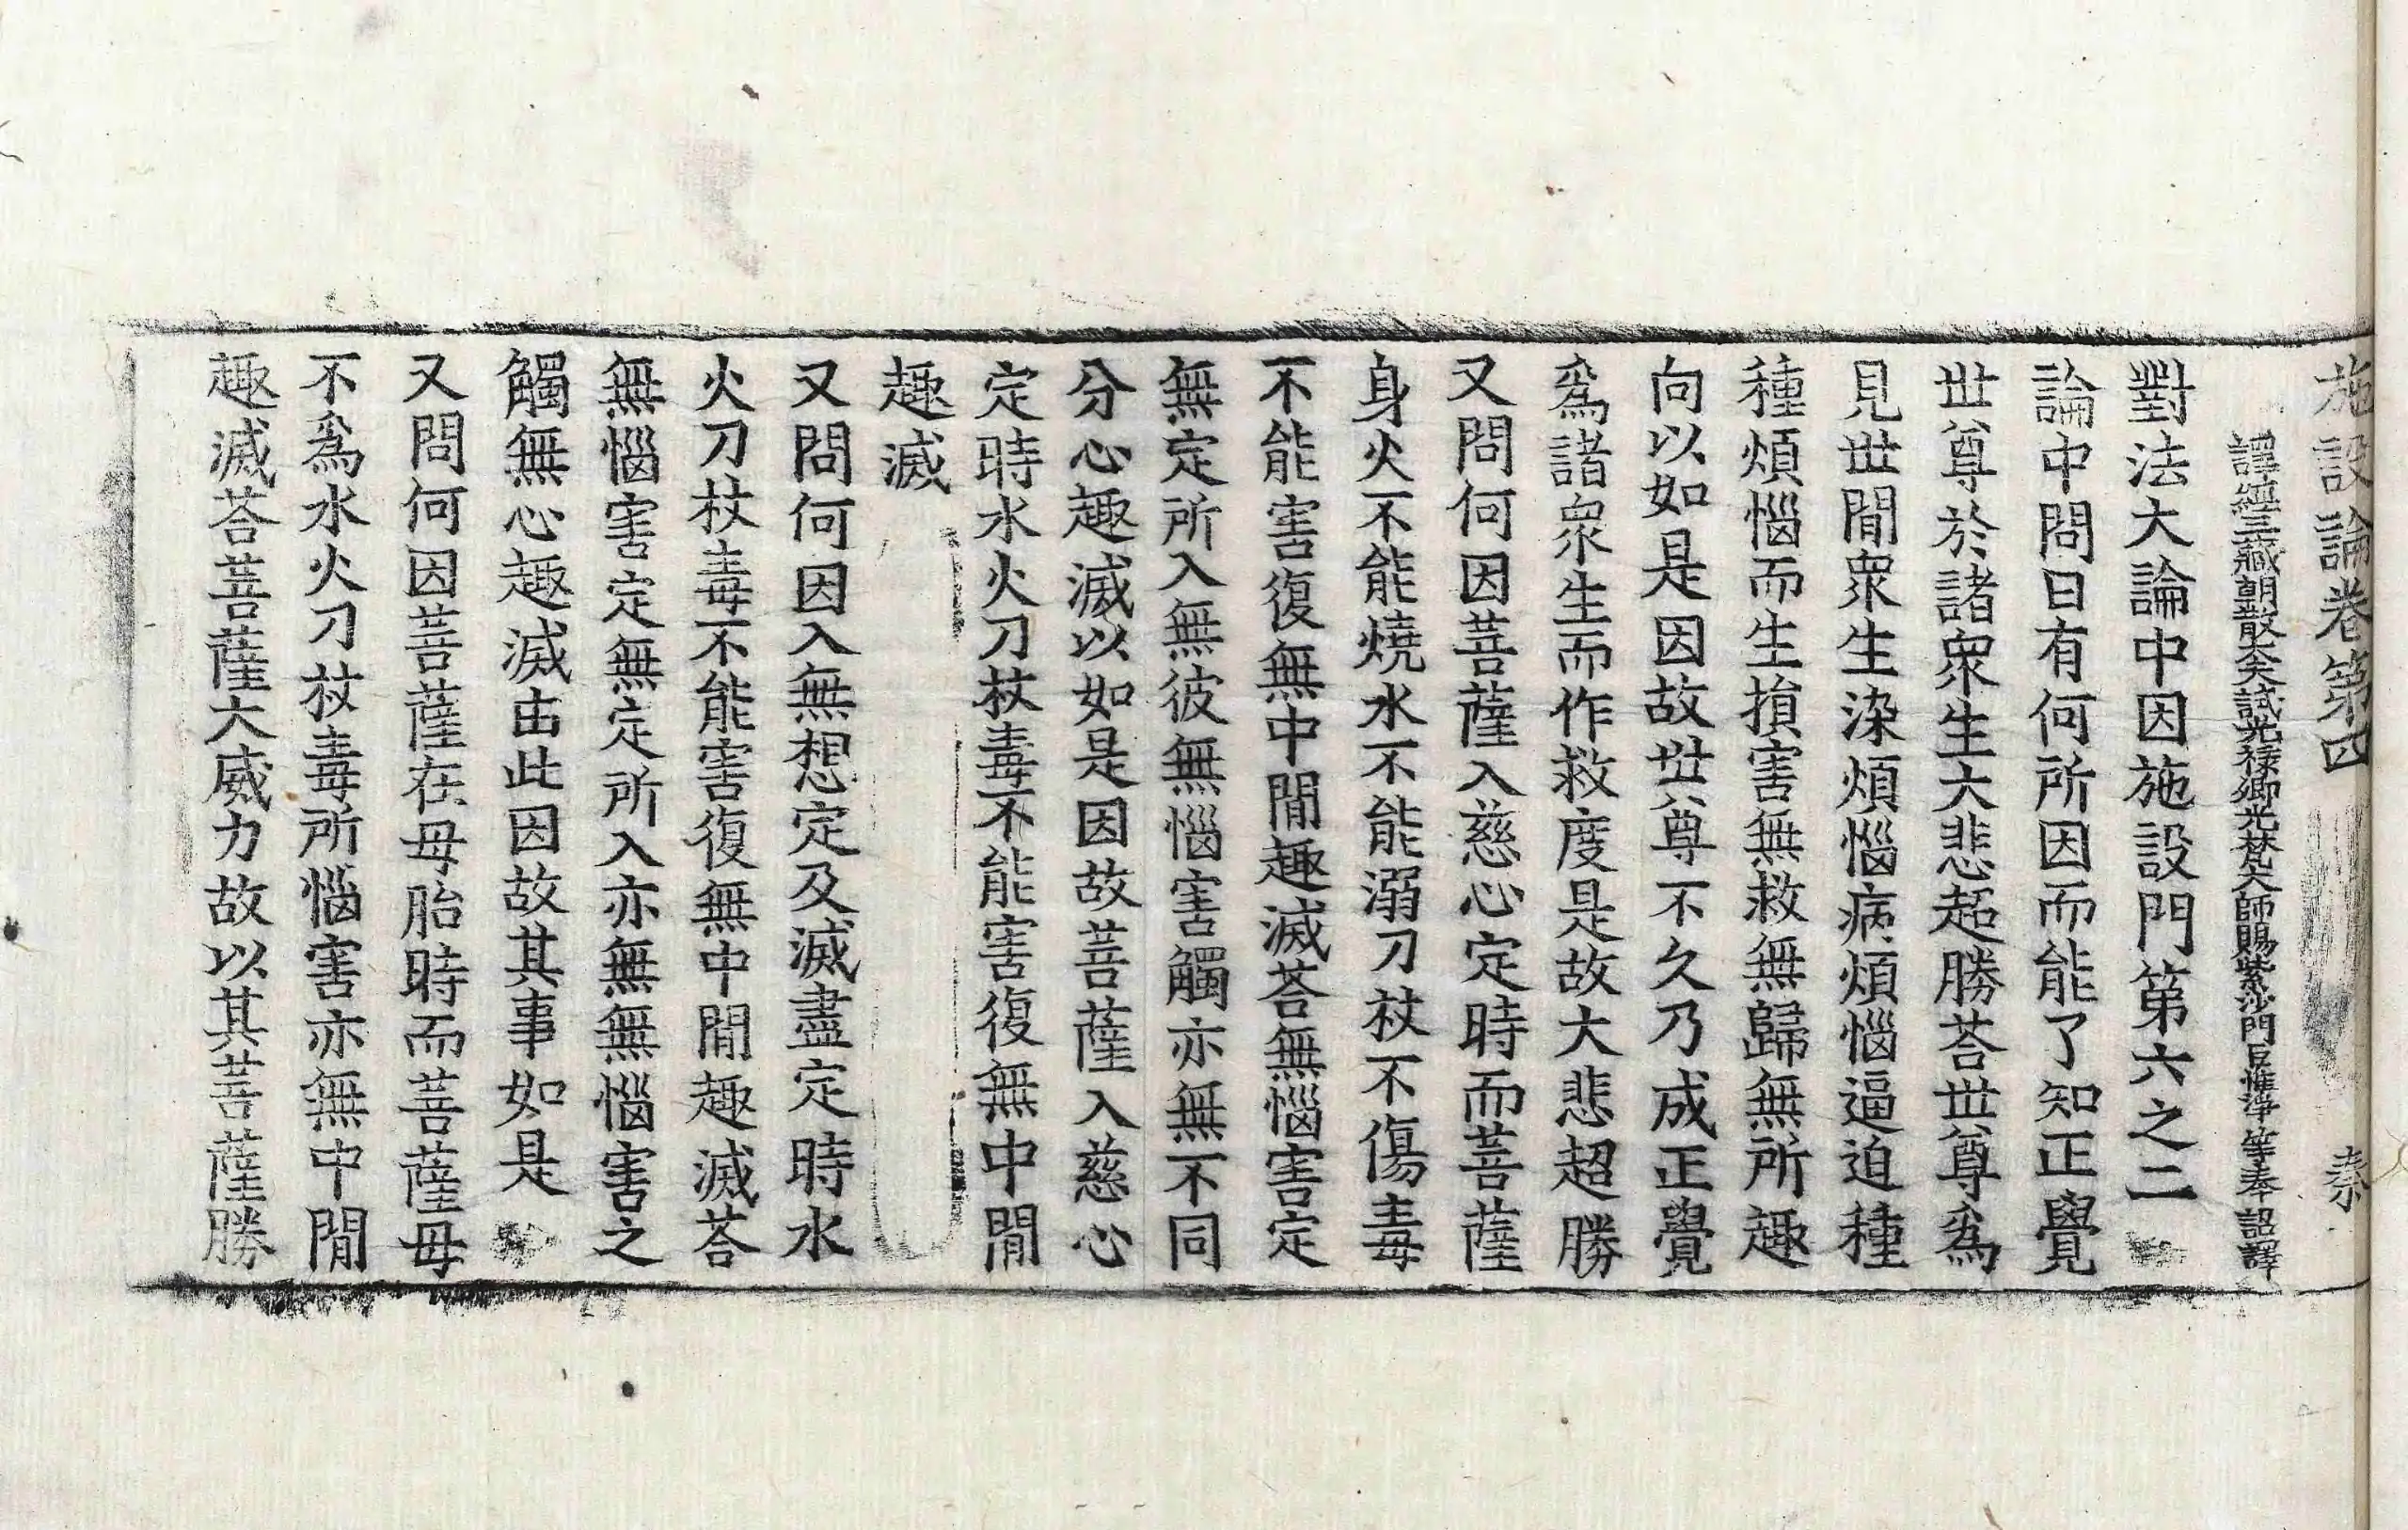 施設論卷第四 秦
譯經三藏朝散大夫試光祿卿光梵大師賜紫沙門臣惟淨等奉詔譯
對法大論中因施設門第六之二
論中問曰有何所因而能了知正覺
世尊於諸衆生大悲超勝荅世尊爲
見世閒衆生染煩惱病煩惱逼迫種
種煩惱而生損害無救無歸無所趣
向以如是因故世尊不久乃成正覺
爲諸衆生而作救度是故大悲超勝
又問何因菩薩入慈心定時而菩薩
身火不能燒水不能溺刀杖不傷毒
不能害復無中閒趣滅荅無惱害定
無定所入無彼無惱害觸亦無不同
分心趣滅以如是因故菩薩入慈心
定時水火刀杖毒不能害復無中閒
趣滅
又問何因入無想定及滅盡定時水
火刀杖毒不能害復無中閒趣滅荅
無惱害定無定所入亦無無惱害之
觸無心趣滅由此因故其事如是
又問何因菩薩在母胎時而菩薩母
不爲水火刀杖毒所惱害亦無中閒
趣滅荅菩薩大威力故以其菩薩勝